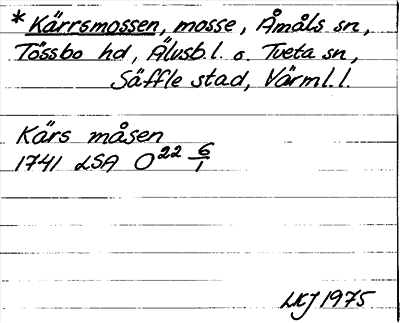 * Kärrsmossen, mosse, Åmåls sn,
Tössbo hd, Älvsb.l. o. Tveta sn,
Säffle stad, Värml.l.
Kärs måsen
1741 LSA O²² 6/1
LKJ 1975